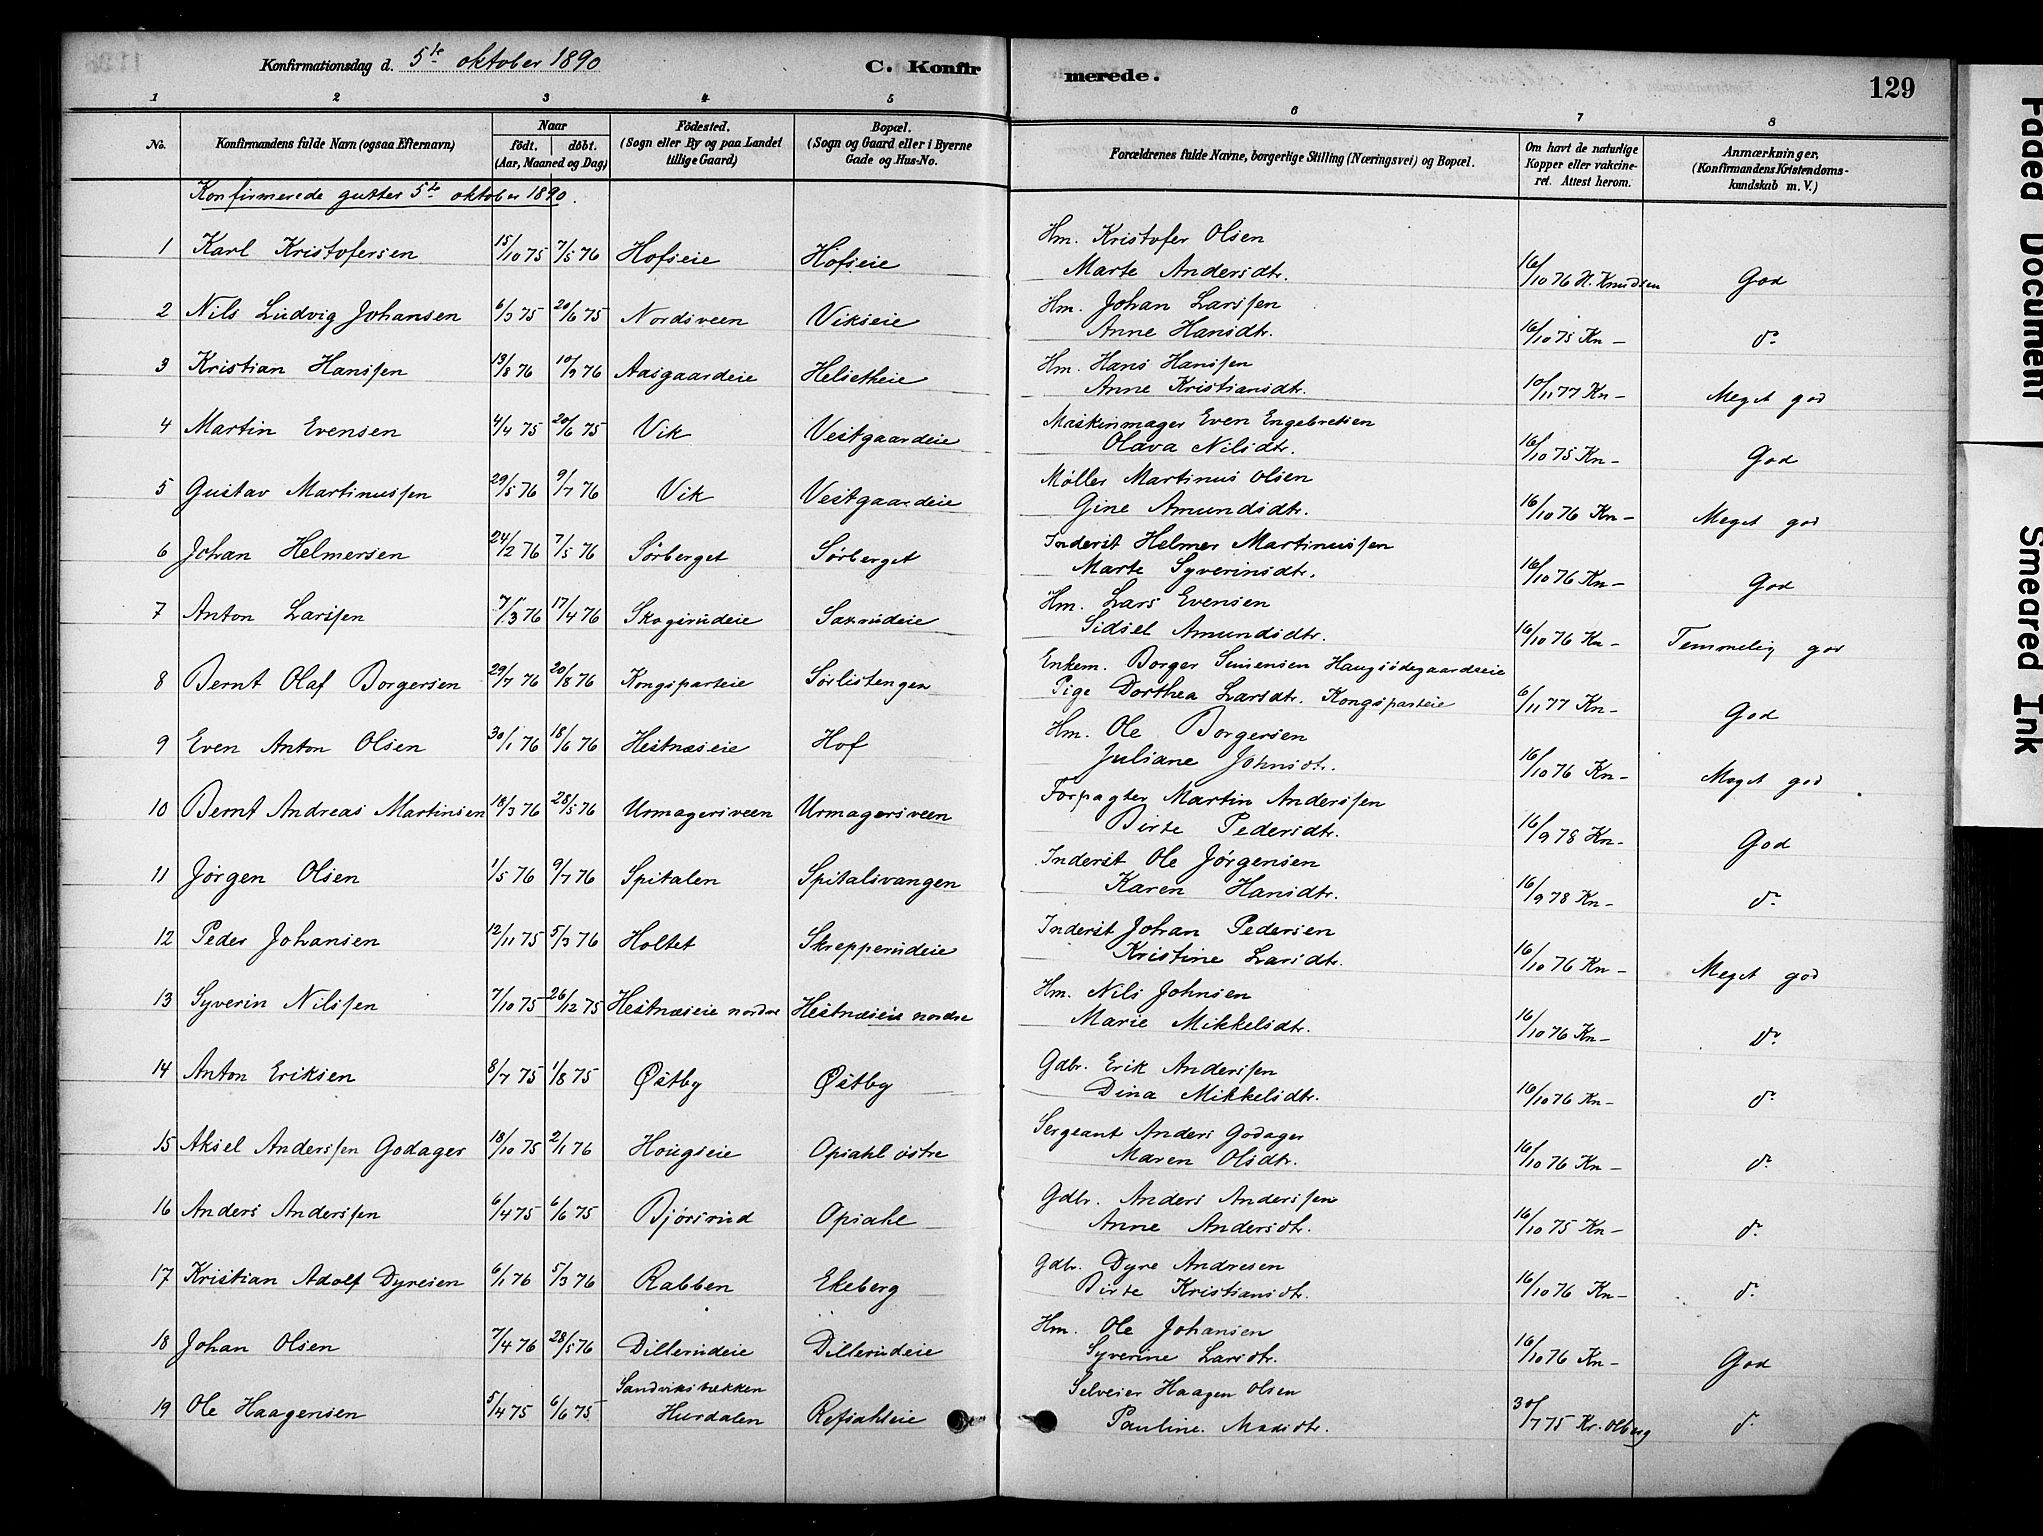 Konfirmationsdag d. 5te oktober 1890
C. Konfirmerede.
129
1 2 3 4 5 6 7 8
No.
Konfirmandens fulde Navn (ogsaa Efternavn)
Naar
födt. döbt.
(Aar, Maaned og Dag)
Födested.
(Sogn eller By og paa Landet
tillige Gaard)
Bopæl.
(Sogn og Gaard eller i Byerne
Gade og Hus-No.
Forældrenes fulde Navne, borgerlige Stilling (Næringsvei) og Bopæl.
Om havt de naturlige
Kopper eller vakcine-
ret. Attest herom.
Anmærkninger,
(Konfirmandens Kristendoms-
kundskab m. V.)
Konfirmerede gutter 5te oktober 1890.
1 Karl Kristofersen 15/10 75 7/5 76 Hofseie Hofseie Hm. Kristofer Olsen
Marte Andersdtr. 16/10 76 N. Knudsen God
2 Nils Ludvig Johansen 6/3 75 20/6 75 Nordsveen Vikseie Hm. Johan Larssen
Anne Hansdtr. 16/10 75 Kn- do
3 Kristian Hanssen 13/8 76 10/9 76 Aasgaardeie Helsetheie Hm. Hans Hanssen
Anne Kristiansdtr. 10/11 77 Kn- Meget god
4 Martin Evensen 4/4 75 20/6 75 Vik Vestgaardeie Maskinmager Even Engebretsen
Olava Nilsdtr. 16/10 75 Kn- God
5 Gustav Martinussen 29/5 76 9/7 76 Vik Vestgaardeie Møller Martinus Olsen
Gine Amundsdtr. 16/10 76 Kn- Meget god
6 Johan Helmersen 24/2 76 7/5 76 Sørberget Sørberget Inderst Helmer Martinussen
Marte Syverinsdtr. 16/10 76 Kn- God
7 Anton Larssen 7/3 76 17/4 76 Skogsrudeie Saxrudeie Hm. Lars Evensen
Sidsel Amundsdtr. 16/10 76 Kn- Temmelig god
8 Bernt Olaf Borgersen 29/7 76 20/8 76 Kongsparteie Sørlistengen Enkem. Borger Simensen Haugsödegaardseie
Pige Dorthea Larsdtr. Kongsparteie 6/11 77 Kn- God
9 Even Anton Olsen 30/1 76 18/6 76 Hestnæseie Hof Hm. Ole Borgersen
Juliane Johnsdtr. 16/10 76 Kn- Meget god
10 Bernt Andreas Martinsen 18/3 76 28/5 76 Urmagersveen Urmagersveen Forpagter Martin Anderssen
Birte Pedersdtr. 16/9 78 Kn- God
11 Jørgen Olsen 1/5 76 9/7 76 Spitalen Spitalsvangen Inderst Ole Jørgensen
Karen Hansdtr. 16/9 78 Kn- do
12 Peder Johansen 12/11 75 5/3 76 Holtet Skrepperudeie Inderst Johan Pedersen
Kristine Larsdtr. 16/10 76 Kn- Meget god
13 Syverin Nilssen 7/10 75 26/12 75 Hestnæseie nordre Hestnæseie nordre Hm. Nils Johnsen
Marie Mikkelsdtr. 16/10 76 Kn- Do
14 Anton Eriksen 8/7 75 1/8 75 Østby Østby Gdbr. Erik Anderssen
Dina Mikkelsdtr. 16/10 76 Kn- do
15 Aksel Anderssen Godager 18/10 75 2/1 76 Hougseie Opsahl østre Sergeant Anders Godager
Maren Olsdtr. 16/10 76 Kn- do
16 Anders Anderssen 6/4 75 6/6 75 Bjørsrud Opsahl Gdbr. Anders Anderssen
Anne Andersdtr. 16/10 75 Kn- do
17 Kristian Adolf Dyresen 6/1 76 5/3 76 Rabben Ekeberg Gdbr. Dyre Andresen
Birte Kristiansdtr. 16/10 76 Kn- do
18 Johan Olsen 7/4 76 28/5 76 Dillerudeie Dillerudeie Hm. Ole Johansen
Syverine Larsdtr. 16/10 76 Kn- God
19 Ole Haagensen 5/4 75 6/6 75 Sandviksbækken
Hurdalen Refsahleie Selveier Haagen Olsen
Pauline Madsdtr. 30/7 75 Kr. Olberg do
Faded Document Smeared Ink